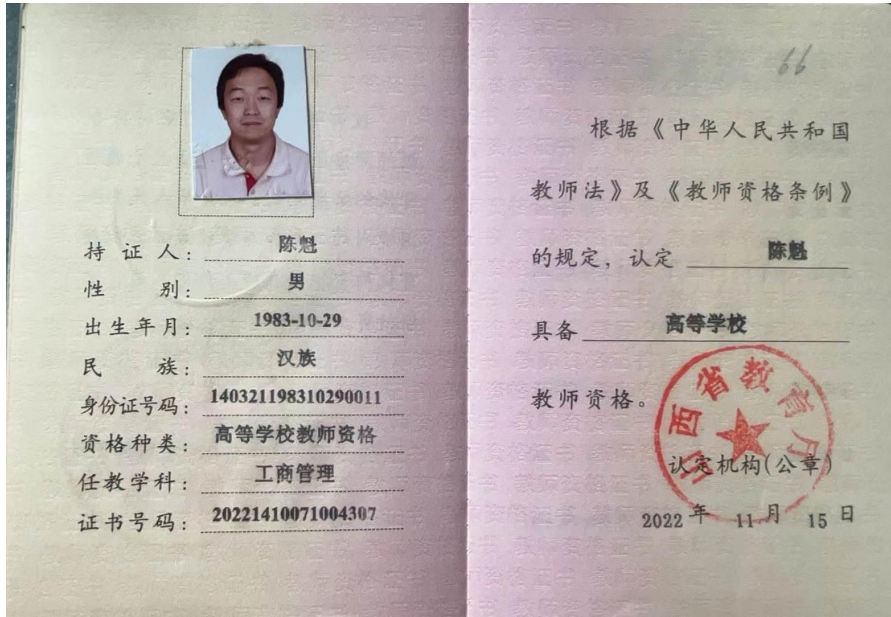 持证人：陈魁
性别：男
出生年月：1983-10-29
民族：汉族
身份证号码：140321198310290011
资格种类：高等学校教师资格
任教学科：工商管理
证书号码：20221410071004307
66
根据《中华人民共和国
教师法》及《教师资格条例》
的规定，认定 陈魁
具备 高等学校
教师资格。
山西省教育厅
认定机构(公章)
2022 年 11 月 15 日